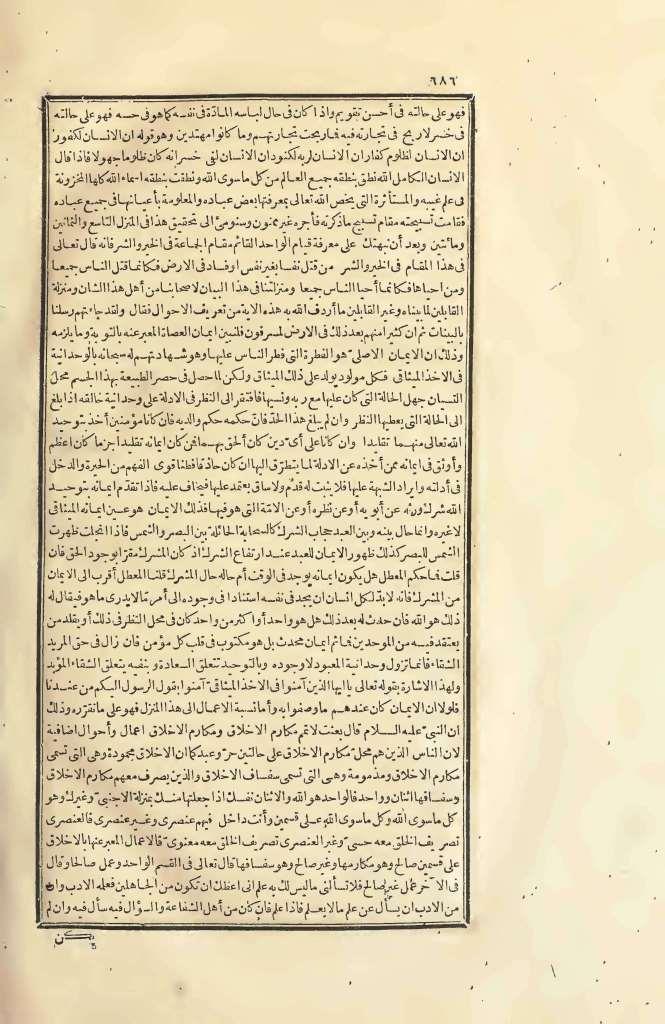 ٦٨٦
فهو على حالته فى أحسن تقويم واذا كان فى حال لباسه المادّة فى نفسه كماهو فى حسه فهو على حالته
فى خسر لاربح فى تجارته فيه فماربحت تجارتهم وما كانوا مهتدين وهو قوله ان الانسان لكفور
ان الانسان لظلوم كفار ان الانسان لربه لكنود ان الانسان لفى خسر انه كان ظلوما جهولا فاذا قال
الانسان الكامل الله نطق بنطقه جميع العالم من كل ماسوى الله ونطقت بنطقه اسماء الله كلها المخزونة
فى علم غيبه والمستأثرة التى يخص الله تعالى بمعرفتها بعض عباده والمعلومة بأعيانها فى جميع عباده
فقامت تسبيحته مقام تسبيح ماذكرته فأجره غير ممنون وسنومئ الى تحقيق هذا فى المنزل التاسع والثمانين
ومائتين وبعد أن نبهتك على معرفة قيام الواحد القائم مقام الجماعة فى الخير والشر فانه قال تعالى
فى هذا المقام فى الخير والشر من قتل نفسا بغير نفس او فساد فى الارض فكأنما قتل الناس جميعا
ومن احياها فكأنما أحيا الناس جميعا ومنزلتنا فى هذا البيان لاصحابنا من أهل هذا الشان ومنزلة
القابلين لما بيناه وغير القابلين ما أردف الله به هذه الآية من تعريف الاحوال فقال ولقد جاءتهم رسلنا
بالبينات ثم ان كثيرا منهم بعد ذلك فى الارض لمسرفون فلنبين ايمان العصاة المعبر عنه بالتوبة وما يلزمه
وذلك ان الايمان الاصلى هو الفطرة التى فطر الناس عليها وهو شهادتهم له سبحانه بالوحدانية
فى الاخذ الميثاقى فكل مولود يولد على ذلك الميثاق ولكن لما حصل فى حصر الطبيعة بهذا الجسم محل
النسيان جهل الحالة التى كان عليها مع ربه ونسيها فافتقر الى النظر فى الادلة على وحدانية خالقه اذا بلغ
الى الحالة التى يعطيها النظر وان لم يبلغ هذا الحدّ فانّ حكمه حكم والديه فان كانا مؤمنين أخذ بتوحيد
الله تعالى منهما تقليدا وان كانا على أىّ دين كان ألحق بهما فمن كان ايمانه تقليدا جزما كان اعظم
وأوثق فى ايمانه ممن أخذه عن الادلة لما يتطرّق اليها ان كان حاذقا فطنا قوى الفهم من الحيرة والدخل
فى أدلته وايراد الشبهة عليها فلا يثبت له قدم ولا ساق يعتمد عليها فيخاف عليه فاذا تقدّم ايمانه بتوحيد
الله شرك ورثه عن أبويه أو عن نظره أو عن الامّة التى هو فيها فذلك الايمان هو عين ايمانه الميثاقى
لاغيره وانما حال بينه وبين العبد حجاب الشرك كالسحابة الحائلة بين البصر والشمس فاذا انجلت ظهرت
الشمس للبصر كذلك ظهور الايمان للعبد عند ارتفاع الشرك اذ كان المشرك مقرّا بوجود الحق فان
قلت فما حكم المعطل هل يكون ايمانه يوجد فى الوقت أم حاله حال المشرك قلنا المعطل أقرب الى الايمان
من المشرك فانه لابدّ لكل انسان ان يجد فى نفسه استنادا فى وجوده الى أمر مّا لايدرى ماهو فيقال له
ذلك هو الله فان حدث له بعد ذلك هل هو واحد أو اكثر من واحد كان فى محل النظر فى ذلك أو يقلد من
يعتقد فيه من الموحدين فما ثم ايمان محدث بل هو مكتوب فى قلب كل مؤمن فان زال فى حق المريد
الشقاء فانما تزول وحدانية المعبود لا وجوده وبالتوحيد تتعلق السعادة وبنفيه يتعلق الشقاء المؤبد
ولهذا الاشارة بقوله تعالى ياايها الذين آمنوا فى الاخذ الميثاقىّ آمنوا بقول الرسول اليكم من عندنا
فلولا ان الايمان كان عندهم ما وصفوا به وأما نسبة الاعمال الى هذا المنزل فهو على ما نقرّره وذلك
ان النبىّ عليه السلام قال بعثت لاتمم مكارم الاخلاق ومكارم الاخلاق اعمال وأحوال اضافية
لان الناس الذين هم محلّ مكارم الاخلاق على حالتين حرّ وعبد كما ان الاخلاق محمودة وهى التى تسمى
مكارم الاخلاق ومذمومة وهى التى تسمى سفساف الاخلاق والذين يصرف معهم مكارم الاخلاق
وسفسافها اثنان وواحد فالواحد هو الله والاثنان نفسك اذا جعلتها منك بمنزلة الاجنبىّ وغيرك وهو
كل ماسوى الله وكل ماسوى الله على قسمين وأنت داخل فيهم عنصرى وغير عنصرى فالعنصرى
تصريف الخلق معه حسىّ وغير العنصرى تصريف الخلق معه معنوى فالاعمال المعبر عنها بالاخلاق
على قسمين صالح وهو مكارمها وغير صالح وهو سفسافها قال تعالى فى القسم الواحد وعمل صالحا وقال
فى الآخر عمل غير صالح فلا تسألنى ماليس لك به علم انى اعظك ان تكون من الجاهلين فعلمه الادب وان
من الادب ان يسأل عن علم مالايعلم فاذا علم فان كان من أهل الشفاعة والسؤال فيه سأل فيه وان لم
يكن